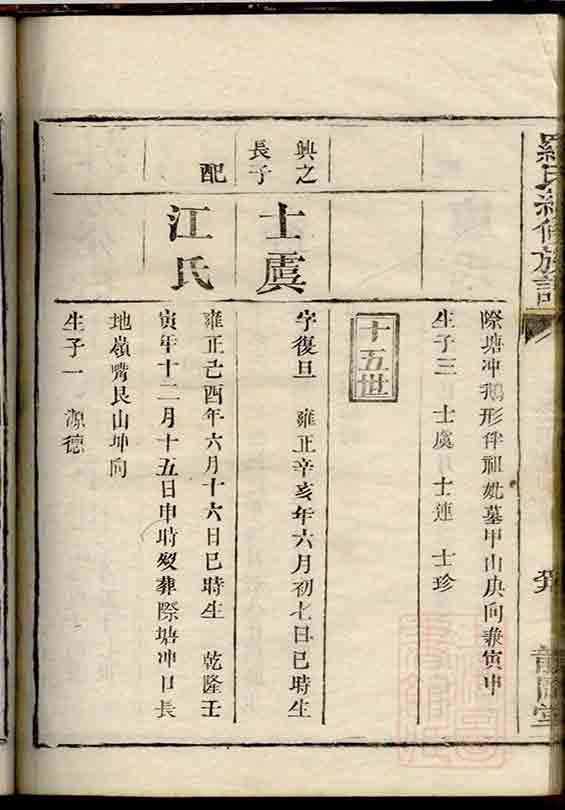 羅氏續修族譜
際塘冲鵝形伴祖妣墓甲山庚向兼寅申
生子三 士虞 士連 士珍
十五世
興之
長子
士虞
字復旦 雍正辛亥年六月初七日巳時生
配
江氏
雍正己酉年六月十六日巳時生 乾隆壬
寅年十二月十五日申時歿葬際塘冲口長
地嶺嘴艮山坤向
生子一 源德